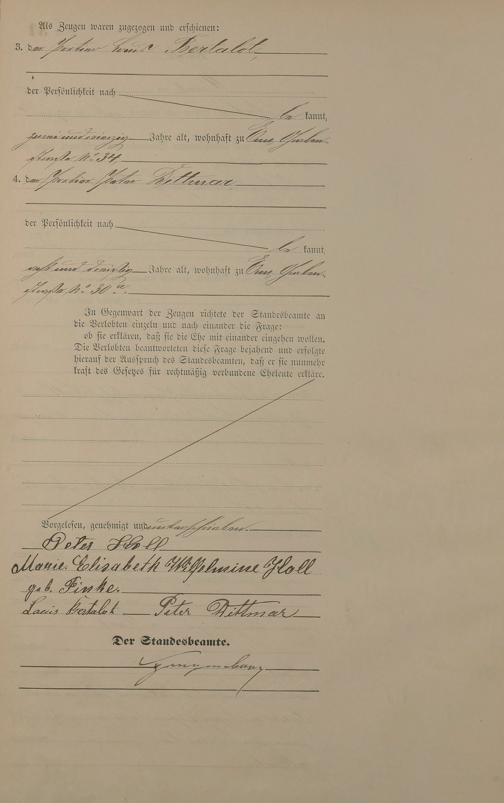 Als Zeugen waren zugezogen und erschienen:
3. der Portier Louis Bertalot
der Persönlichkeit nach
be kannt,
zweiundvierzig Jahre alt, wohnhaft zu
straße No 34
4. der Portier Peter Dittmar
der Persönlichkeit nach
be kannt,
Jahre alt, wohnhaft zu
straße No 30a.
In Gegenwart der Zeugen richtete der Standesbeamte an
die Verlobten einzeln und nach einander die Frage:
ob sie erklären, daß sie die Ehe mit einander eingehen wollen.
Die Verlobten beantworteten diese Frage bejahend und erfolgte
hierauf der Ausspruch des Standesbeamten, daß er sie nunmehr
kraft des Gesetzes für rechtmäßig verbundene Eheleute erkläre.
Vorgelesen, genehmigt und unterschrieben.
Peter Holl
Marie Elisabeth Wilhelmine Holl
geb. Finke.
Louis Bertalot Peter Dittmar
Der Standesbeamte.